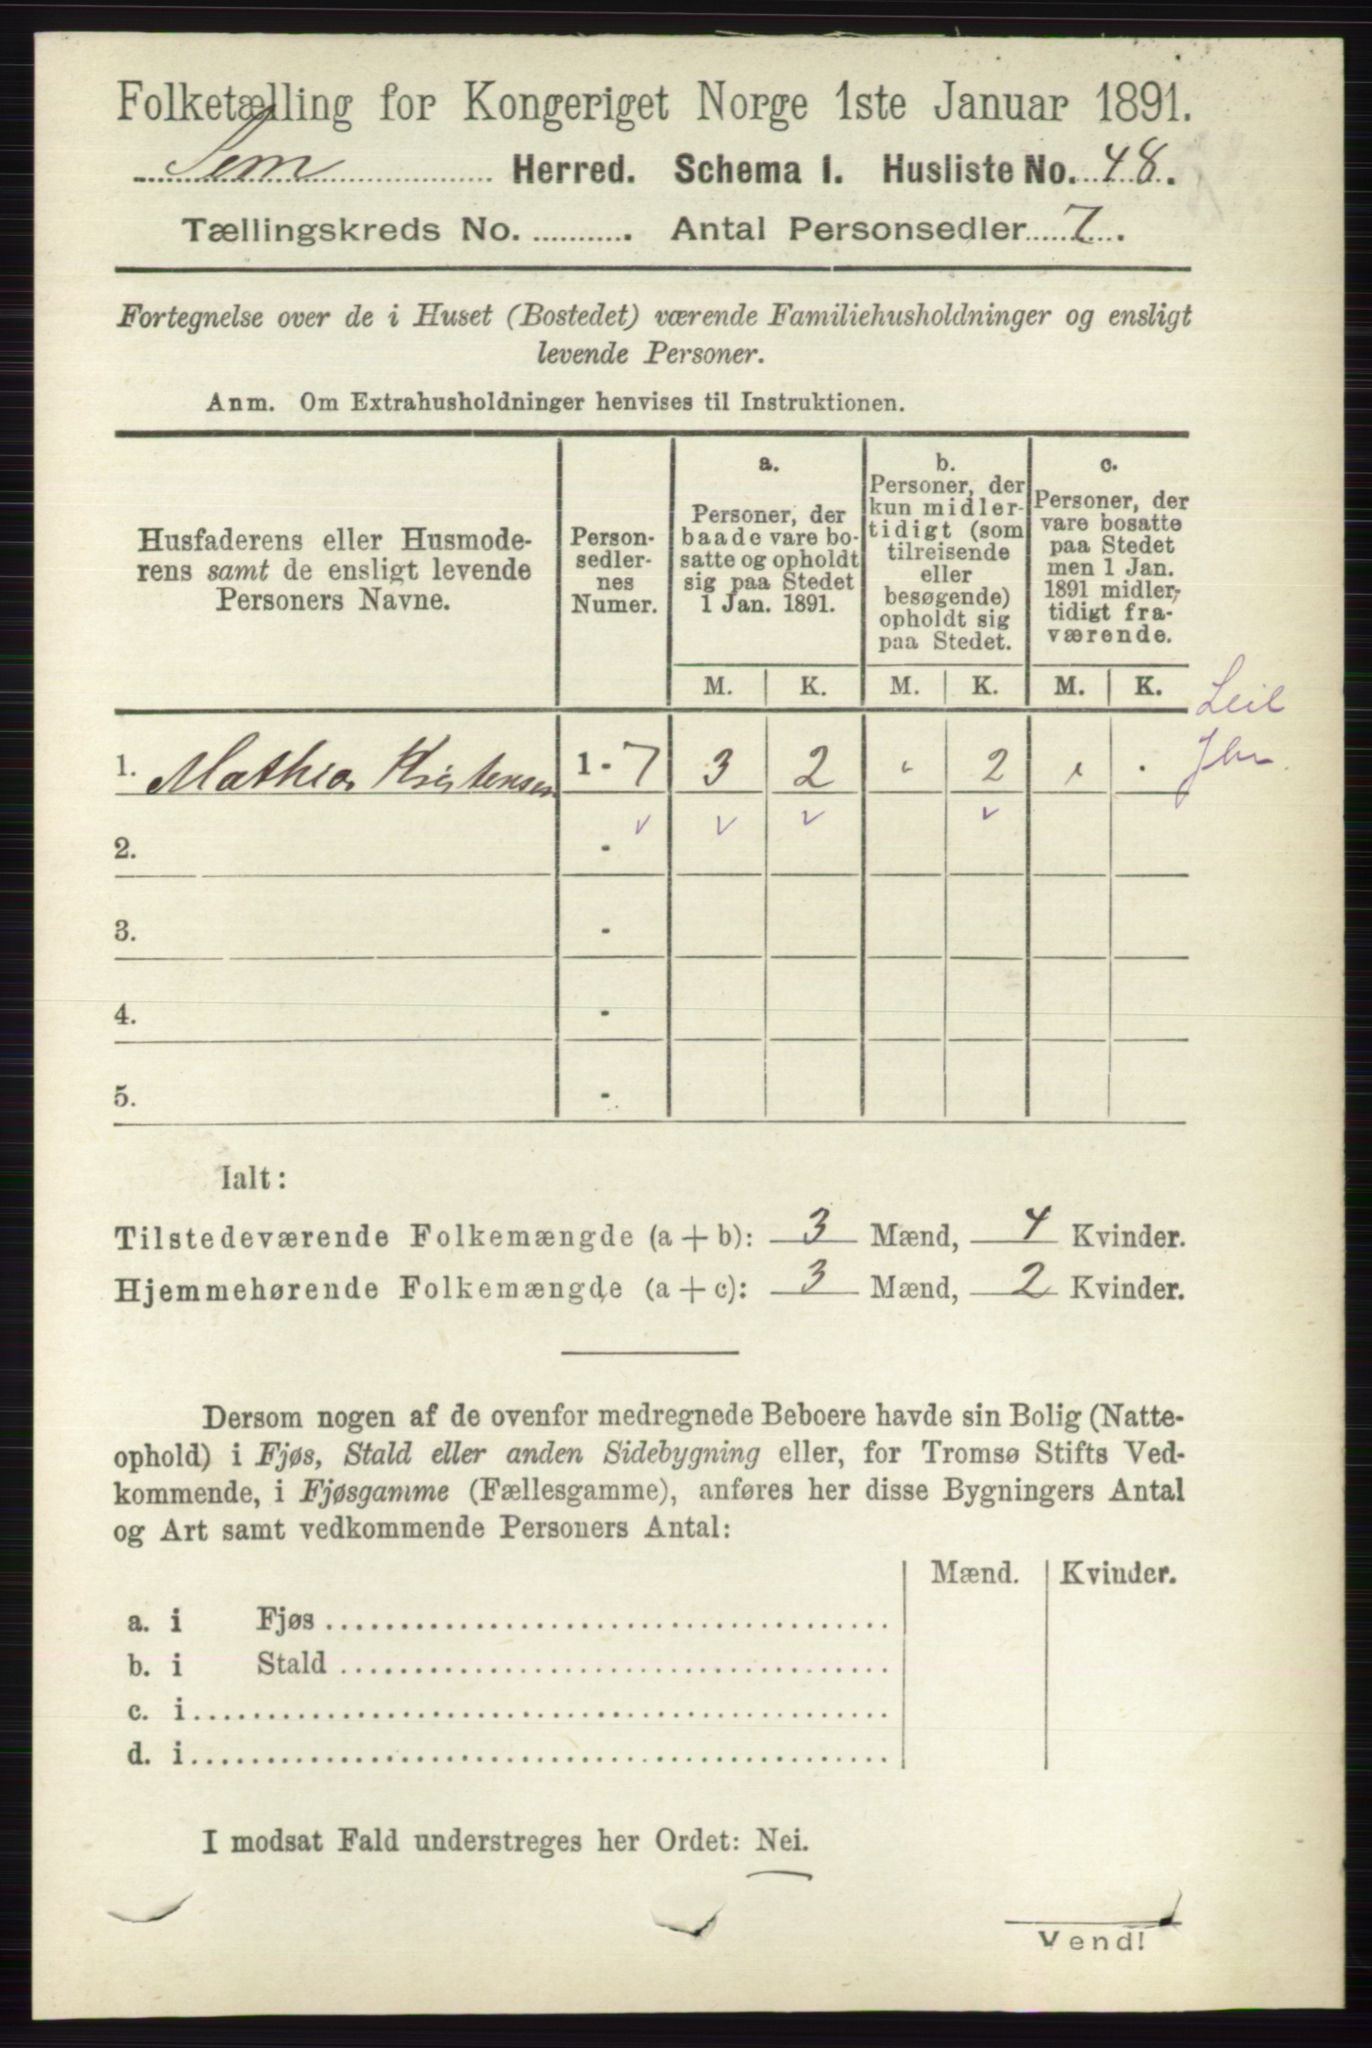 Folketælling for Kongeriget Norge 1ste Januar 1891.
Sem Herred. Schema I. Husliste No. 48.
Tællingskreds No. ........... Antal Personsedler 7.
Fortegnelse over de i Huset (Bostedet) værende Familiehusholdninger og ensligt
levende Personer.
Anm. Om Extrahusholdninger henvises til Instruktionen.
Husfaderens eller Husmode-
rens samt de ensligt levende
Personers Navne.
Person-
sedler-
nes
Numer.
a.
Personer, der
baade vare bo-
satte og opholdt
sig paa Stedet
1 Jan. 1891.
b.
Personer, der
kun midler-
tidigt (som
tilreisende
eller
besøgende)
opholdt sig
paa Stedet.
c.
Personer, der
vare bosatte
paa Stedet
men 1 Jan.
1891 midler-
tidigt fra-
værende.
M. K. M. K. M. K.
Leil
1. Mathias Kristensen 1 - 7 3 2 " 2 " .
2. -
3. -
4. -
5. -
Ialt:
Tilstedeværende Folkemængde (a + b): 3 Mænd, 4 Kvinder.
Hjemmehørende Folkemængde (a + c): 3 Mænd, 2 Kvinder.
Dersom nogen af de ovenfor medregnede Beboere havde sin Bolig (Natte-
ophold) i Fjøs, Stald eller anden Sidebygning eller, for Tromsø Stifts Ved-
kommende, i Fjøsgamme (Fællesgamme), anføres her disse Bygningers Antal
og Art samt vedkommende Personers Antal:
Mænd. Kvinder.
a. i Fjøs
b. i Stald
c. i
d. i
I modsat Fald understreges her Ordet: Nei.
Vend!